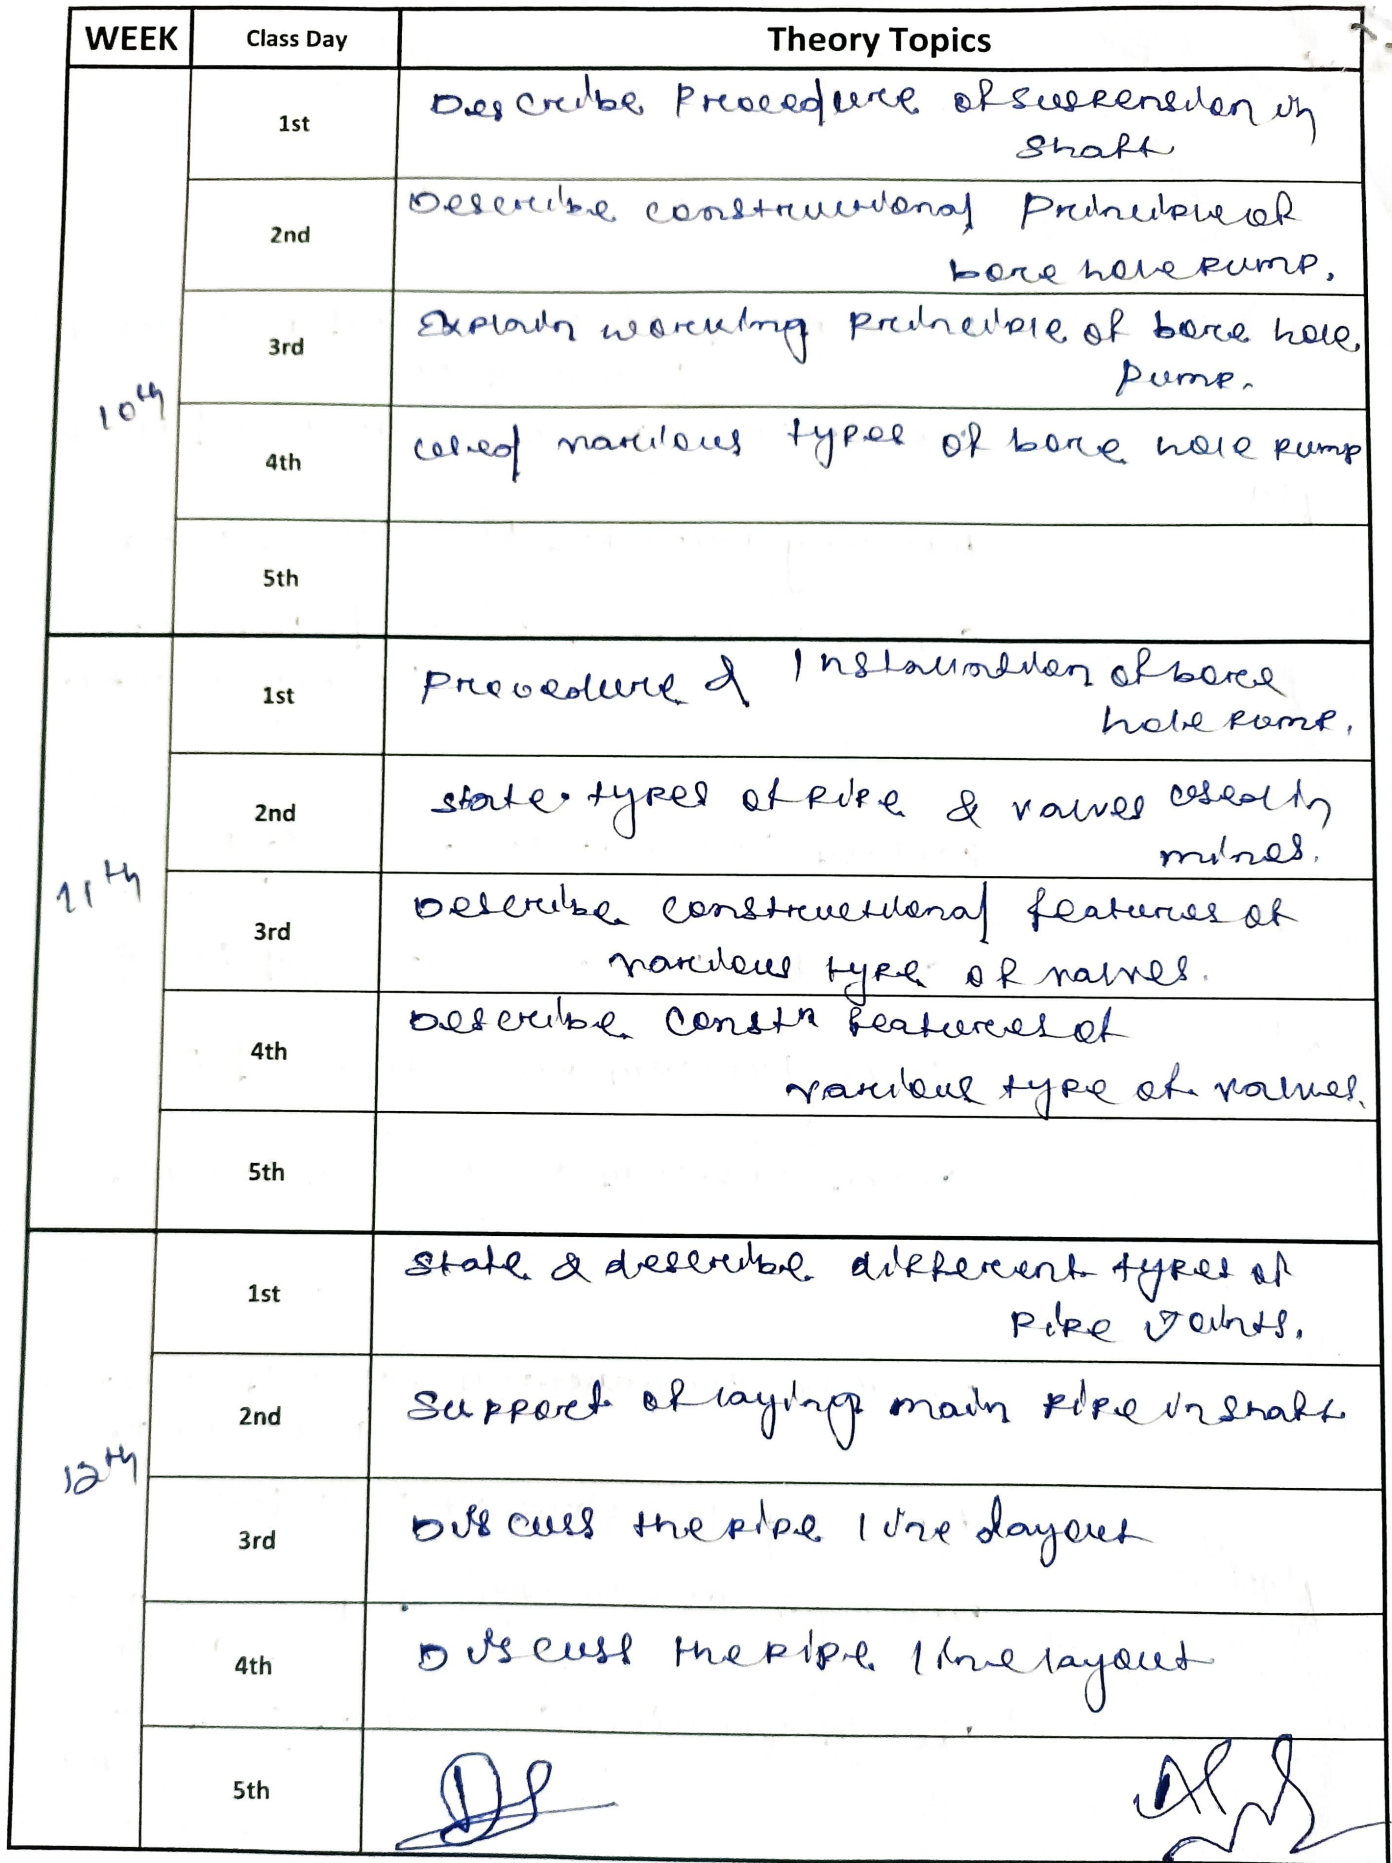 WEEK Class Day Theory Topics
10th
1st
Describe Procedure of suspension in
shaft
2nd
Describe constructional Principle of
bore hole pump.
3rd
Explain working principle of bore hole
pump.
4th
various types of bore hole pump
5th
11th
1st
Procedure & Installation of bore
hole pump.
2nd
state types of pipe & valves used in
mines.
3rd
Describe constructional features of
various type of valves.
4th
Describe Constn features of
various type of valves.
5th
12th
1st
State & describe different types of
pipe Joints.
2nd
Support of laying main pipe in shaft
3rd
Discuss the pipe line layout
4th
Discuss the pipe line layout
5th